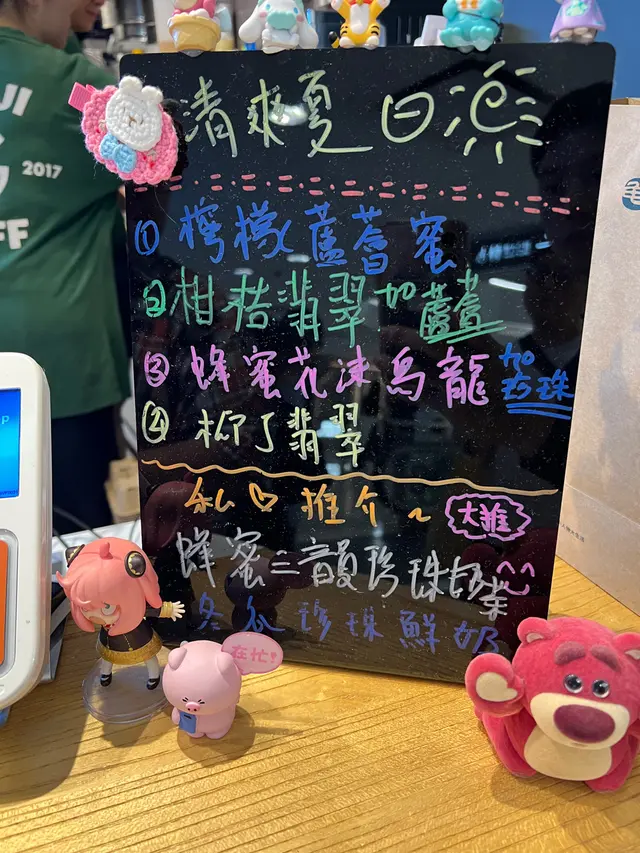 清爽夏日涼
① 檸檬蘆薈蜜
② 柑桔翡翠加蘆薈
③ 蜂蜜花凍烏龍 加珍珠
④ 柳丁翡翠
私♡推介~ 大推
蜂蜜三韻珍珠奶茶
冬瓜珍珠鮮奶
在忙!
2017
P